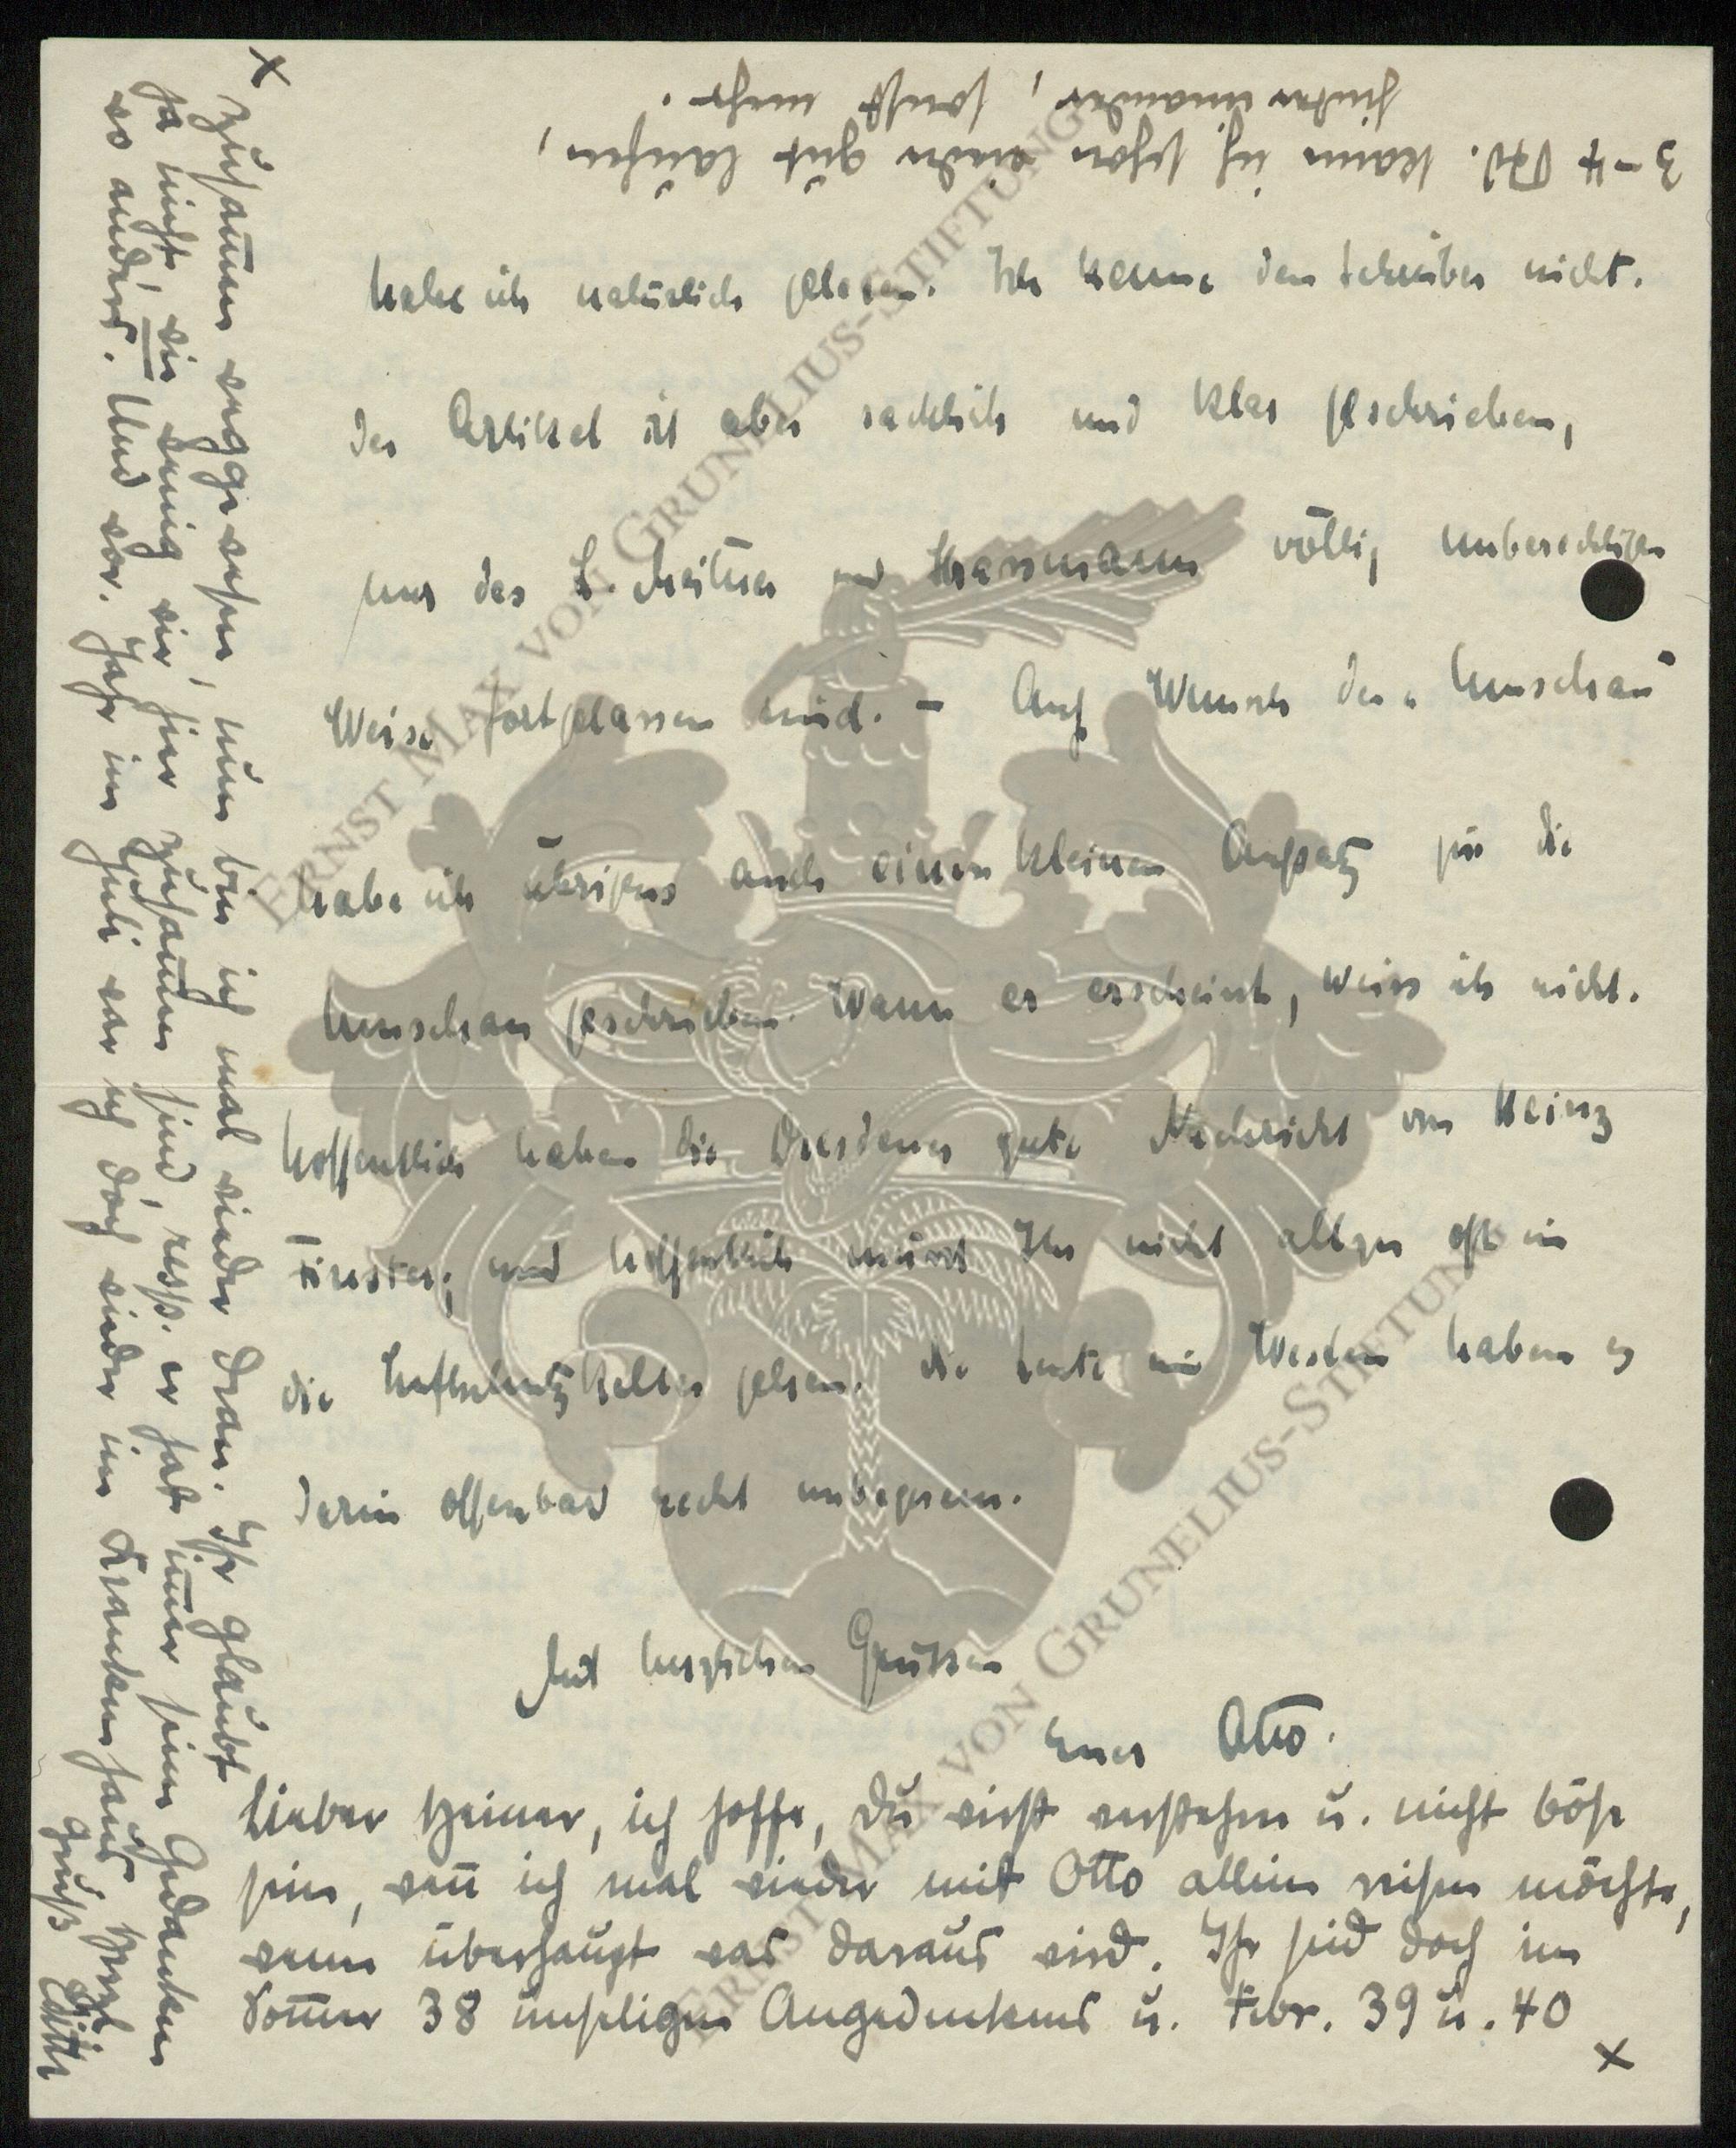 habe ich natürlich gelesen. Ich kenne den Schreiber nicht.
Der Artikel ist aber sachlich und klar geschrieben,
nur das L. Meitner und Strassmann völlig unberechtigter
Weise fortgelassen sind. – Auf Wunsch der "Umschau"
habe ich übrigens auch einen kleinen Aufsatz für die
Umschau geschrieben. Wann er erscheint, weiss ich nicht.
Hoffentlich haben die Dresdener gute Nachricht von Heinz
und hoffentlich müsst Ihr nicht allzu oft in
die Luftschutzkeller gehen. Die Leute im Westen haben es
darin offenbar recht unbequem.
Mit herzlichen Grüssen
Euer Otto.
Lieber Heiner, ich hoffe, Du wirst verstehen u. nicht böse
sein, wenn ich mal wieder mit Otto allein reisen möchte,
wenn überhaupt was daraus wird. Ihr seid doch im
Sommer 38 unseligen Angedenkens u. Febr. 39 u. 40
x
x
zusammen weggewesen, nun bin ich mal wieder dran. Ihr glaubt
ja nicht, wie wenig wir hier zusammen sind, resp. er hat immer seine Gedanken
wo anders. Und vor. Jahr im Juli war ich doch wieder im Krankenhaus. Herzl.
Gruß Edith
3–4 Std. kann ich schon wieder gut laufen,
hintereinander, sonst mehr.
ERNST MAX VON GRUNELIUS-STIFTUNG
ERNST MAX VON GRUNELIUS-STIFTUNG